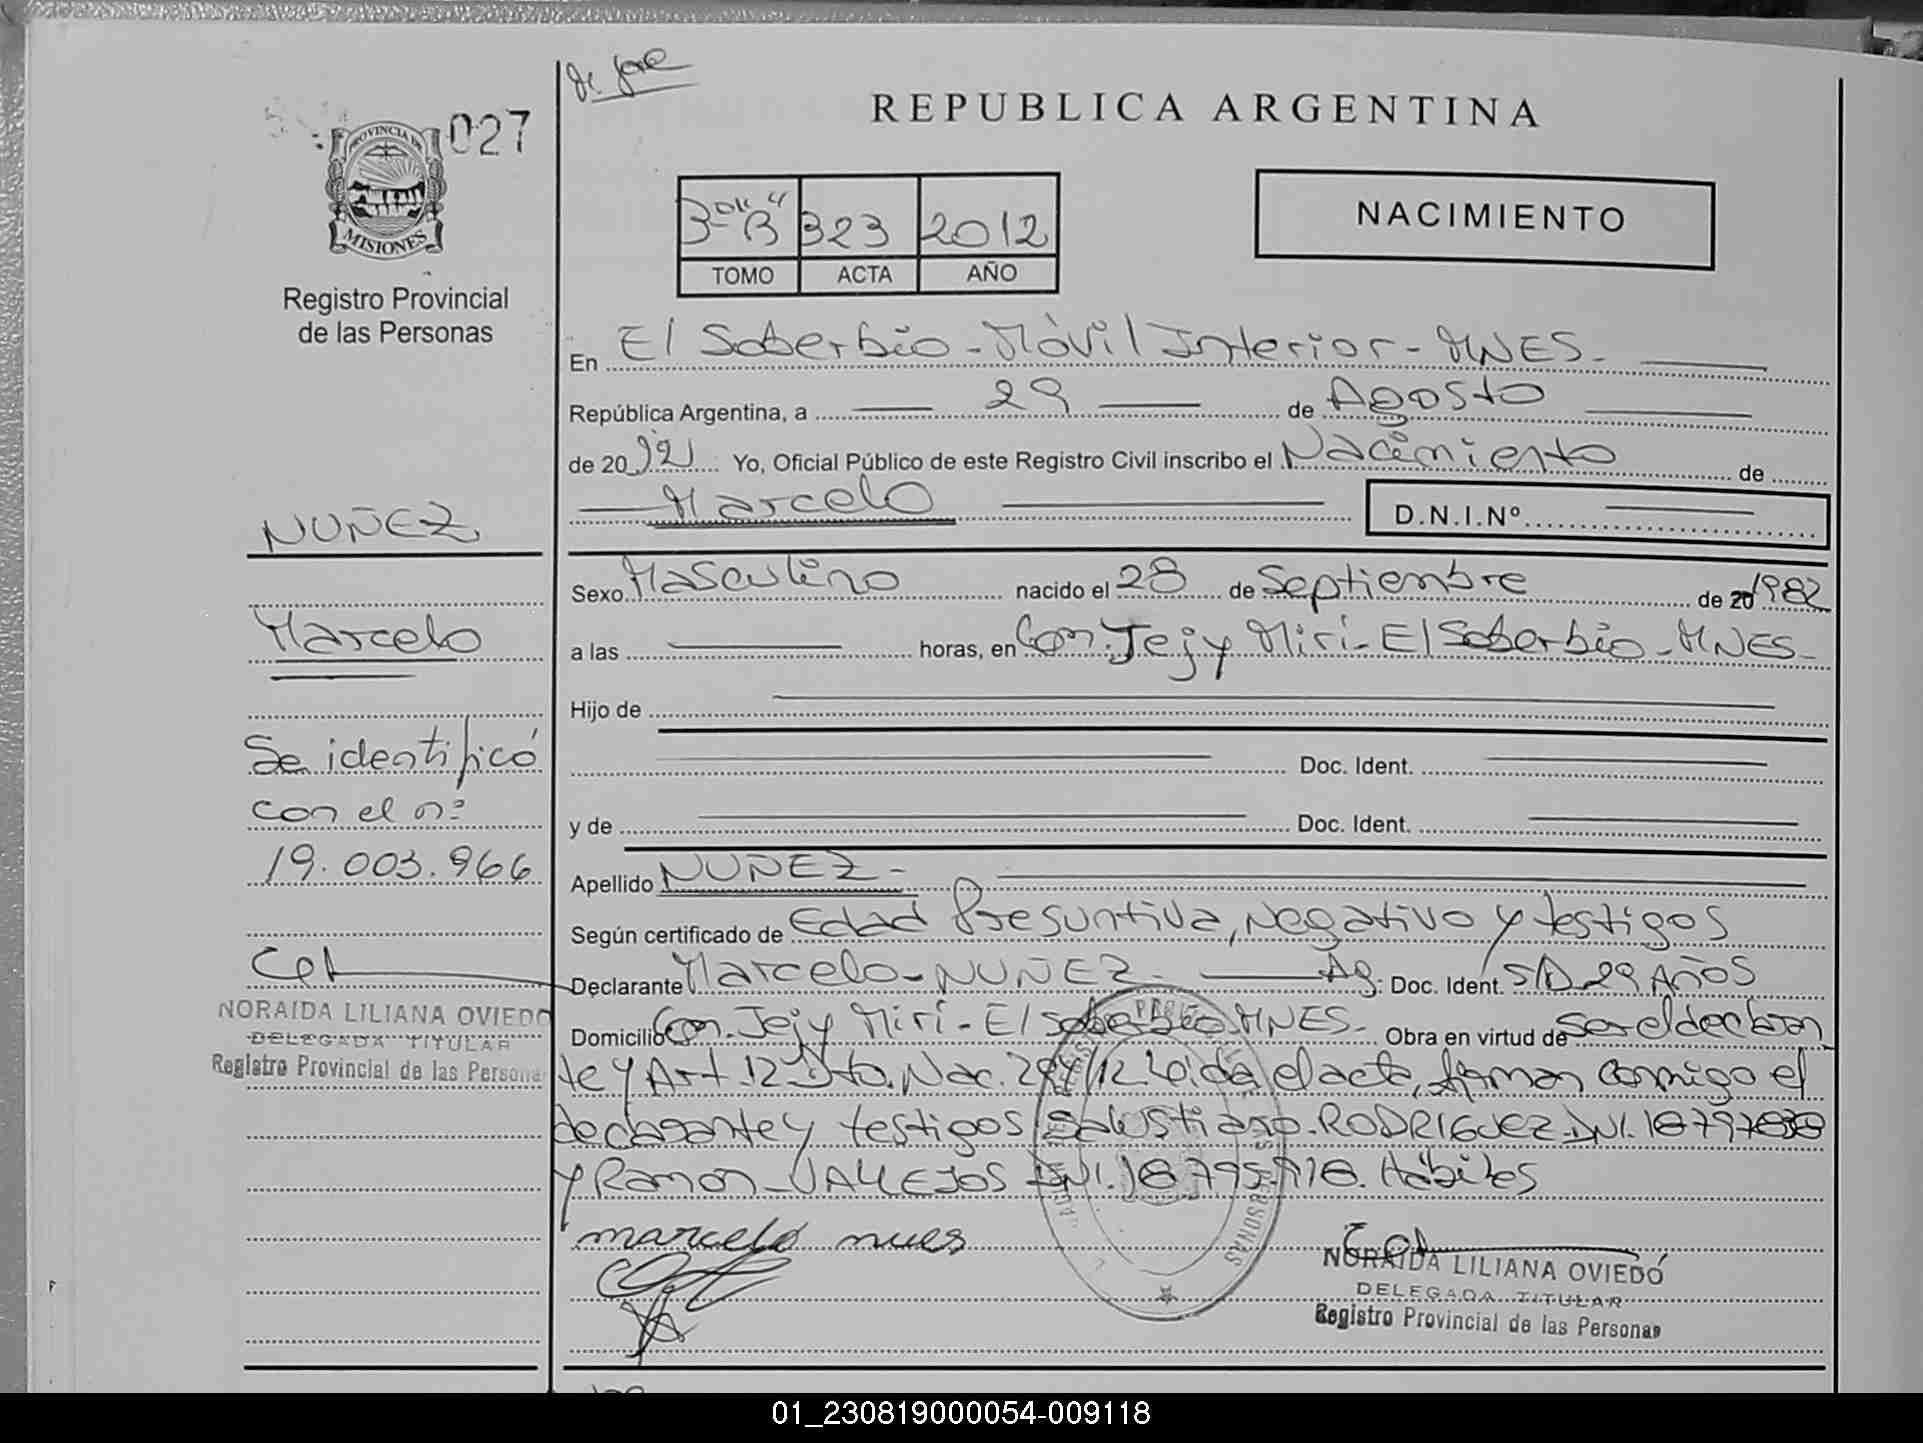 027
PROVINCIA DE
MISIONES
Registro Provincial
de las Personas
REPUBLICA ARGENTINA
323 2012
TOMO ACTA AÑO
NACIMIENTO
En El Soberbio - Móvil Interior - MNES.
República Argentina, a 29 de Agosto
de 2012 Yo, Oficial Público de este Registro Civil inscribo el Nacimiento de
Marcelo D.N.I.Nº
NUÑEZ
Marcelo
Se identificó
con el nº
19.003.966
NORAIDA LILIANA OVIEDO
DELEGADA TITULAR
Registro Provincial de las Personas
Sexo Masculino nacido el 28 de Septiembre de 20 1982
a las horas, en Com. Jejy Miri - El Soberbio - MNES -
Hijo de
Doc. Ident.
y de Doc. Ident.
Apellido NUÑEZ -
Según certificado de Edad Presuntiva, Negativo y testigos
Declarante Marcelo - NUÑEZ - Ag. Doc. Ident. S/D 29 AÑOS
Domicilio Com. Jejy Miri - El Soberbio MNES - Obra en virtud de ser el declaran
te y Art. 12 Dto. Nac. 294/12 Leida el acta, firman conmigo el
declarante y testigos Salustiano RODRIGUEZ DNI.
y Ramon - VALLEJOS DNI. 18.795.918. Hábiles
marcelo nues
NORAIDA LILIANA OVIEDO
DELEGADA TITULAR
Registro Provincial de las Personas
01_230819000054-009118